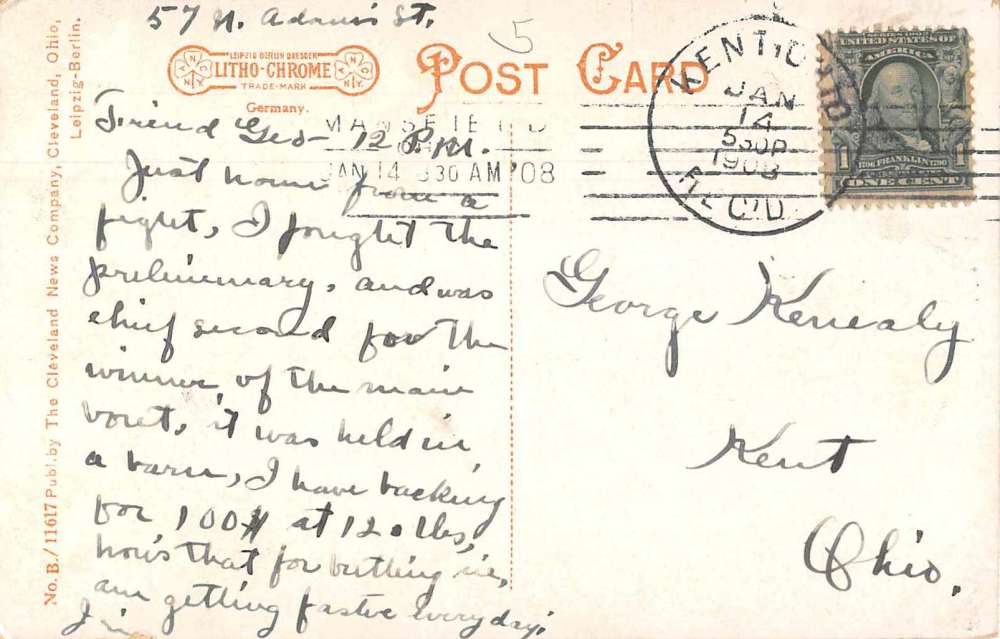 57 N. Adams St.
5
LEIPZIG BERLIN DRESDEN
LITHO-CHROME
TRADE-MARK
Germany.
POST CARD
KENT, O
JAN
14
530P
1908
REC'D.
SERIES 1902
UNITED STATES OF
AMERICA
1 FRANKLIN 1
ONE CENT
JAN 14 930 AM '08
Friend Geo- 12 P.M.
Just home from a
fight, I fought the
preliminary, and was
chief second for the
winner, of the main
bout, it was held in
a barn, I have backing
for 100$ at 120 lbs,
how's that for butting in,
am getting faster every day.
Jim
George Kenealy
Kent
Ohio.
No. B./11617 Publ. by The Cleveland News Company, Cleveland, Ohio,
Leipzig-Berlin.